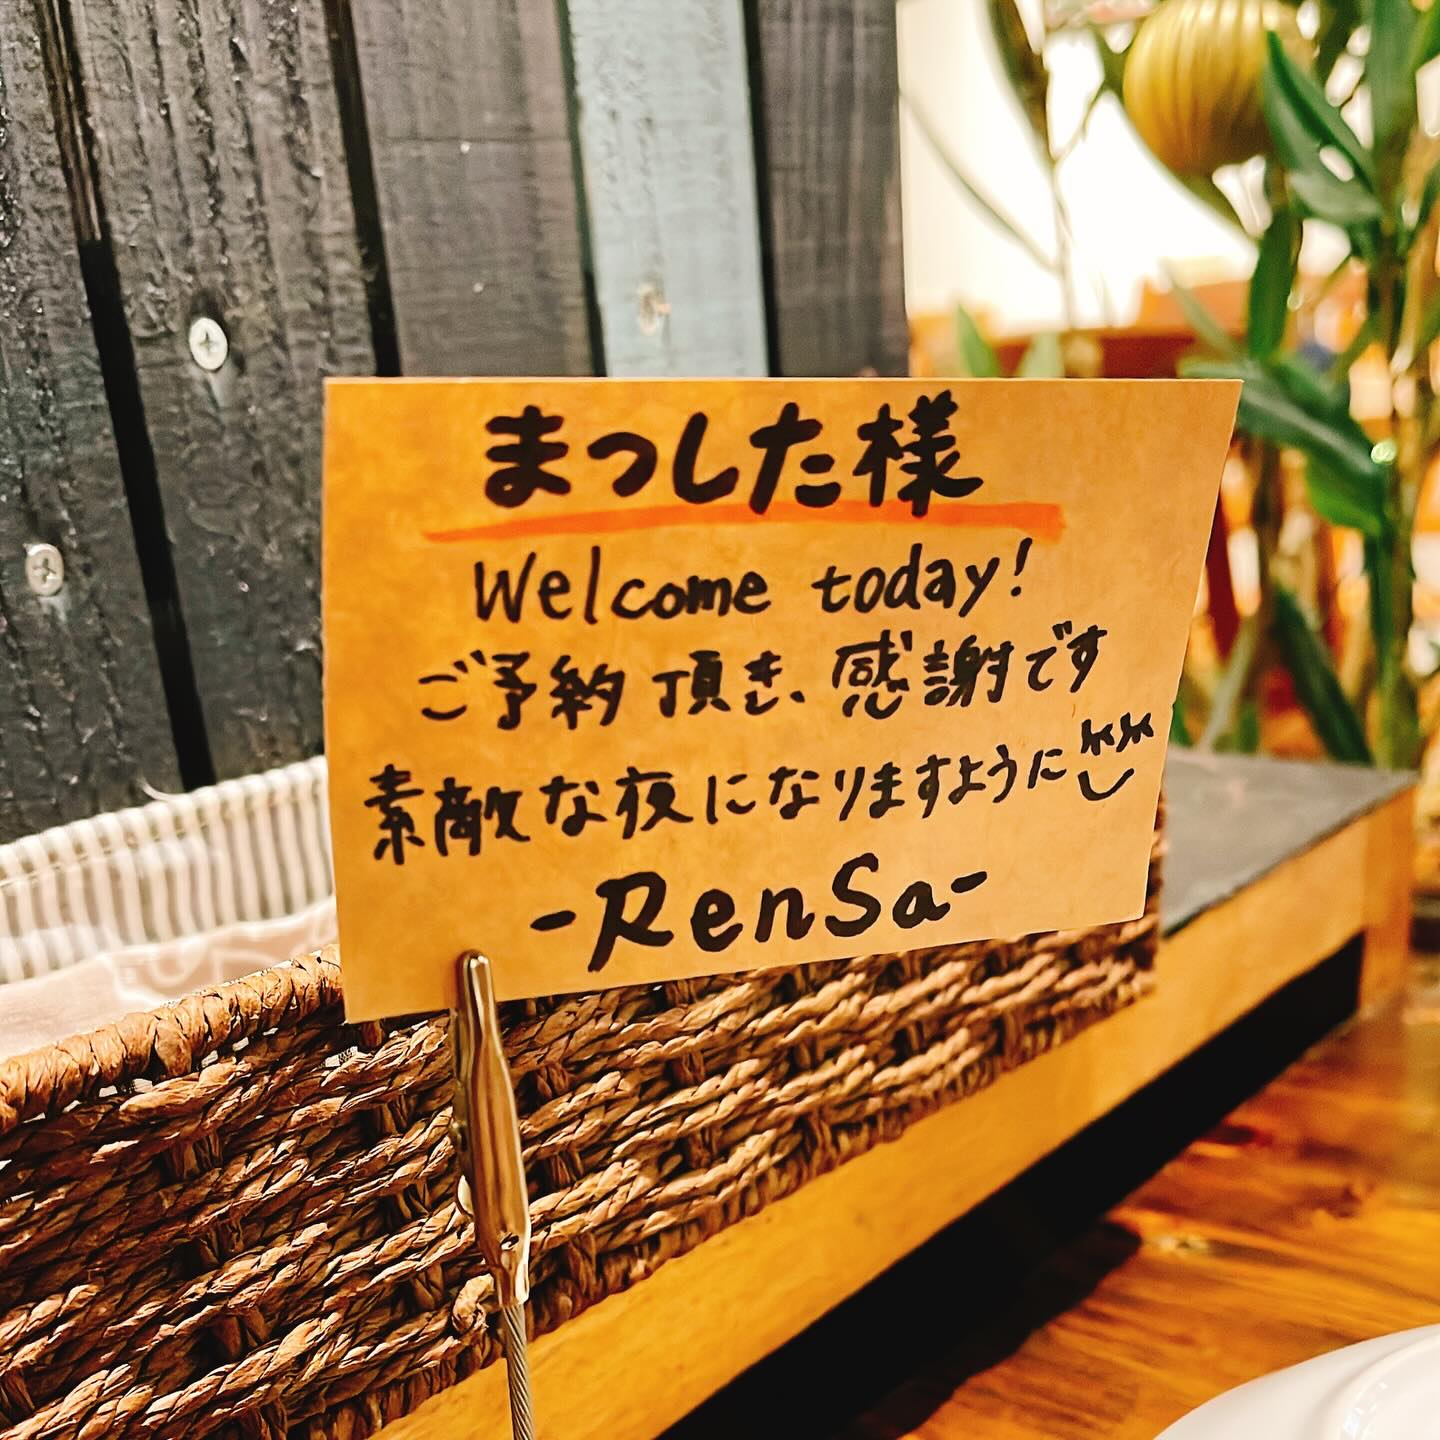 まつした様
Welcome today!
ご予約頂き、感謝です
素敵な夜になりますように
-RenSa-